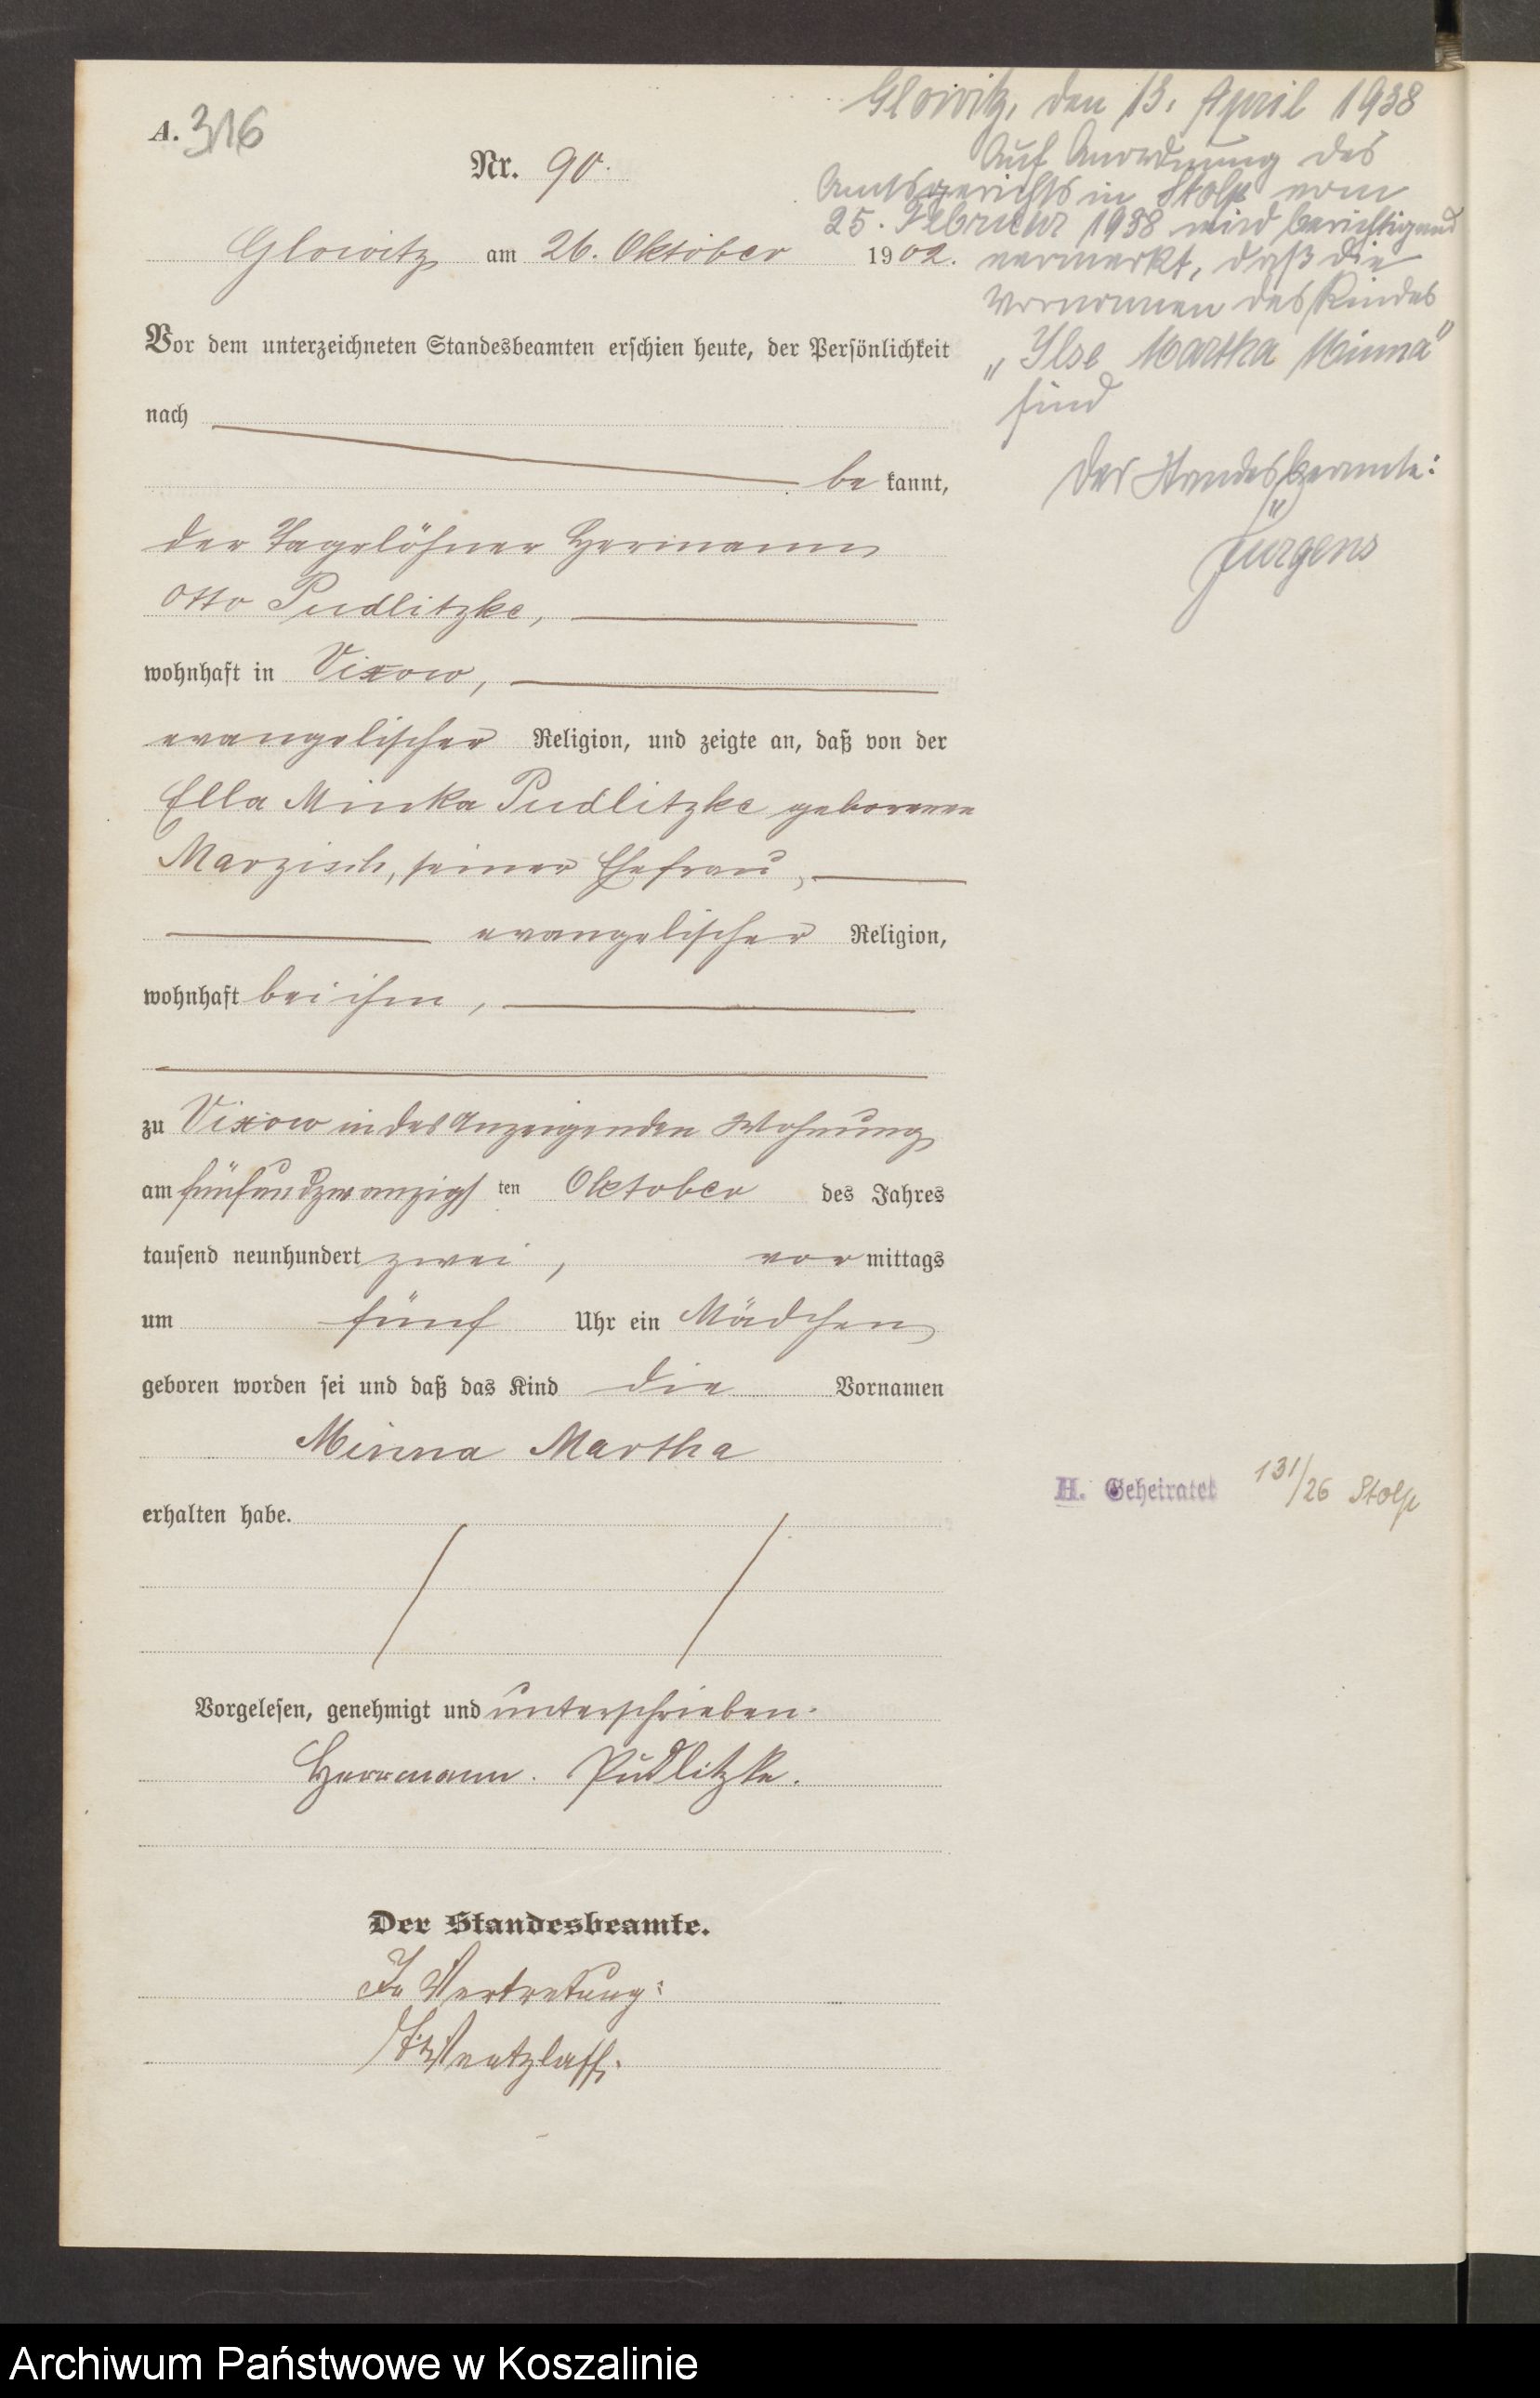 A. 316
Nr. 90.
Glowitz am 26. Oktober 1902.
Vor dem unterzeichneten Standesbeamten erschien heute, der Persönlichkeit
nach
be kannt,
der Tagelöhner Hermann
Otto Pudlitzke,
wohnhaft in Vixow,
evangelischer Religion, und zeigte an, daß von der
Ella Minka Pudlitzke geborenen
Marzisch, seiner Ehefrau,
evangelischer Religion,
wohnhaft bei ihm,
zu Vixow in des Anzeigenden Wohnung
am fünfundzwanzigsten Oktober des Jahres
tausend neunhundert zwei, vor mittags
um fünf Uhr ein Mädchen
geboren worden sei und daß das Kind die Vornamen
Minna Martha
erhalten habe.
Vorgelesen, genehmigt und unterschrieben.
Herrmann. Pudlitzke.
Der Standesbeamte.
In Vertretung:
Wentzlaff.
Glowitz, den 13. April 1938
Auf Anordnung des
Amtsgerichts in Stolp vom
25. Februar 1938 wird berichtigend
vermerkt, daß die
Vornamen des Kindes
„Ilse Martha Minna"
sind
Der Standesbeamte:
Jürgens
H. Geheiratet 131/26 Stolp
Archiwum Państwowe w Koszalinie